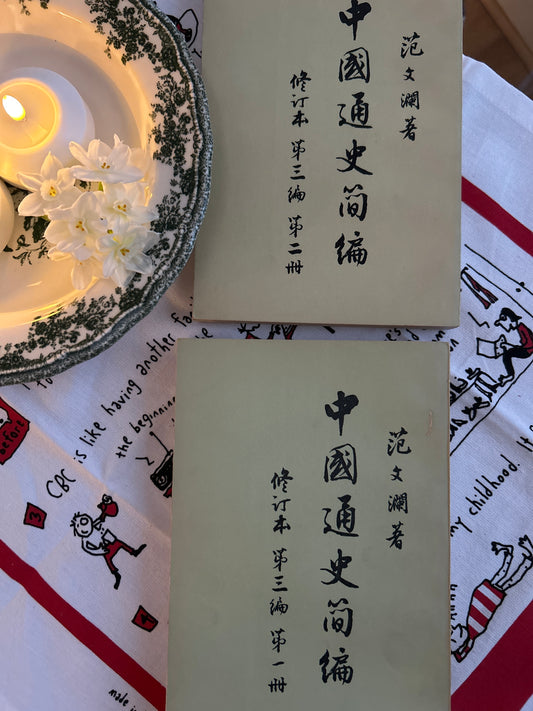 范文澜著
中國通史简编
修订本 第三编 第二册
范文澜著
中國通史简编
修订本 第三编 第一册
CBC is like having another
the beginning
before
3
4
my childhood. It
made in